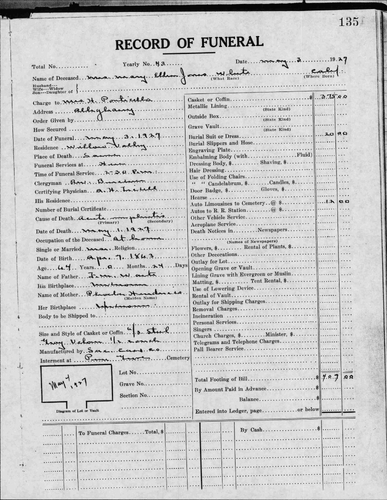 135
RECORD OF FUNERAL
Total No. Yearly No. 43 Date May 3 1927
Name of Deceased Mrs. Mary Ellen Jones White Calif.
(What Race) (Where Born)
Husband
Wife—Widow
Son—Daughter of
Charge to Mrs H.
Address Alleghany
Order Given by
How Secured
Date of Funeral May 3, 1927
Residence Willow Valley
Place of Death Same
Funeral Services at Home
Time of Funeral Service 2:30 P.m.
Clergyman Rev.
Certifying Physician
His Residence
Number of Burial Certificate
Cause of Death Acute nephritis
(Primary) (Secondary)
Date of Death May 1, 1927
Occupation of the Deceased At home
Single or Married Religion
Date of Birth Apr. 7, 1863
Age 64 Years 0 Months 24 Days
Name of Father
His Birthplace Unknown
Name of Mother
(Maiden Name)
Her Birthplace Unknown
Body to be Shipped to
Size and Style of Casket or Coffin
Manufactured by
Interment at Cemetery
Lot No.
Grave No.
Section No.
May 4 1927
Diagram of Lot or Vault
Casket or Coffin $ 375.00
Metallic Lining
(State Kind)
Outside Box
(State Kind)
Grave Vault
(State Kind)
Burial Suit or Dress 20 00
Burial Slippers and Hose
Engraving Plate
Embalming Body (with Fluid)
Dressing Body, $ Shaving, $
Hair Dressing
Use of Folding Chairs
" " Candelabrum, $ Candles, $
Door Badge, $ Gloves, $
Hearse
Auto Limousines to Cemetery @ $ 12.00
Autos to R. R. Station @ $
Other Vehicle Service
Aeroplane Service
Death Notices in Newspapers
(Names of Newspapers)
Flowers, $ Rental of Plants, $
Other Decorations
Outlay for Lot
Opening Grave or Vault
Lining Grave with Evergreen or Muslin
Matting, $ Tent Rental, $
Use of Lowering Device
Rental of Vault
Outlay for Shipping Charges
Removal Charges
Incineration
Personal Services
Singers
Church Charges, $ Minister, $
Telegrams and Telephone Charges
Pall Bearer Service
Total Footing of Bill $ 407 00
By Amount Paid in Advance
Balance
Entered into Ledger, page or below
To Funeral Charges Total, $ By Cash $